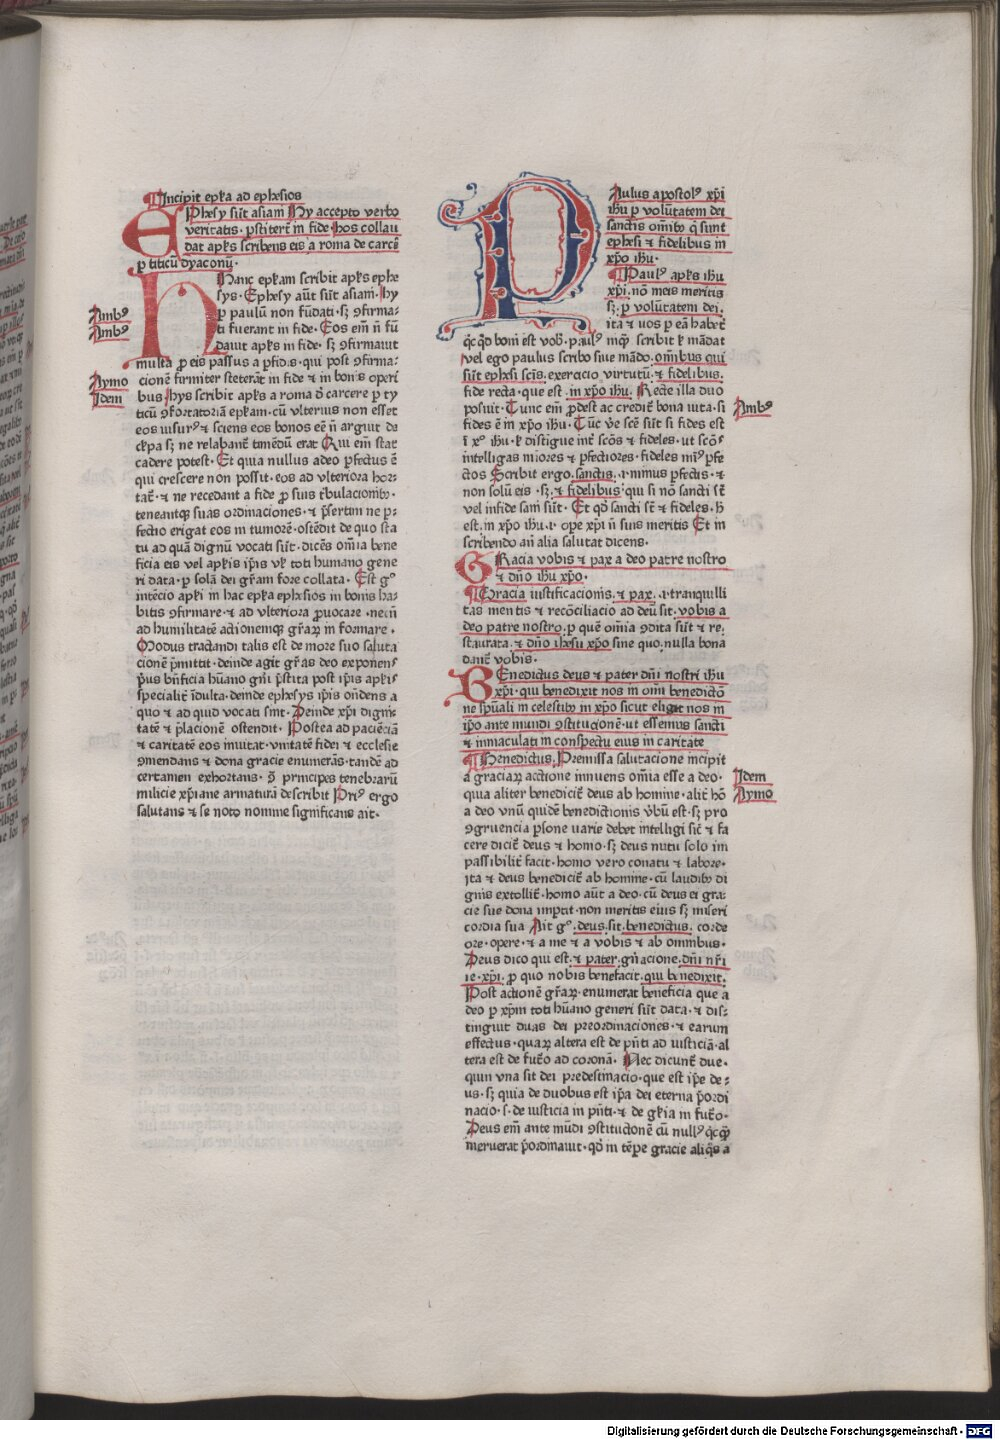 Incipit epl'a ad ephesios
EPhesy sūt asiani Hy accepto verbo
veritatis · pstiterūt in fide · hos collau
dat apl's scribens eis a roma de carcē
p titicū dyaconū ·
HHanc epl'am scribit apl's ephe
sys · Ephesy aūt sūt asiani · hy
Ambꝰ
p paulū non fūdati · sꝫ ꝯfirma-
Ambꝰ
ti fuerant in fide · Eos eī n̄ fū
dauit apl's in fide · sꝫ ꝯfirmauit
multa ꝓ eis passus a pfidis · qui post ꝯfirma-
Aymo
cionē firmiter steterāt in fide ⁊ in bonis operi
Idem
bus · hys scribit apl's a roma d̄ carcere p ty
ticū ꝯfortatoriā epl'am · cū vlterius non esset
eos visurꝰ ⁊ sciens eos bonos eē n̄ arguit de
cl'pa sꝫ ne relabant̄ timēdū erat Qui eī stat
cadere potest · Et quia nullus adeo pfectus ē
qui crescere non possit · eos ad vlteriora hor-
tat̄ · ⁊ ne recedant a fide ꝓ suis t'bulacioībꝰ ·
teneantqꝫ suas ordinaciones · ⁊ psertim ne p-
fectio erigat eos in tumorē · ostēdit de quo sta
tu ad quā dignū vocati sūt · dicēs oīa bene
ficia eis vel apl'is ip̄is vl' toti humano gene
ri data · p solā dei gr̄am fore collata · Est gº
intēcio apl'i in hac epl'a ephesios in bonis ha-
bitis ꝯfirmare · ⁊ ad vlteriora ꝓuocare · necn̄
ad humilitatē actionemqꝫ gr̄aꝝ in formare ·
Modus tractandi talis est de more suo saluta
cionē pmittit · deinde agit gr̄as deo exponens
pus bn̄ficia hūano gn̄i pstita post ip̄is apl'is
specialit̄ īdulta · deinde ephesys ip̄is oñdens a
quo ⁊ ad quid vocati sint · Deinde xp̄i digni-
tatē ⁊ placionē ostendit · Postea ad paciēciā
⁊ caritatē eos inuitat · vnitatē fidei ⁊ ecclesie
ꝯmendans ⁊ dona gracie enumerās · tandē ad
certamen exhortans · ꝯ̄ principes tenebrarū
milicie xp̄iane armaturā describit Priꝰ ergo
salutans ⁊ se noto nomine significans ait ·
PAulus apostolꝰ xp̄i
ihū p volūtatem dei
sanctis oībꝰ q̄ sunt
ephesi ⁊ fidelibus in
xp̄o ihū ·
Paulꝰ apl's ihū
xp̄i · nō meis meritis
sꝫ · p volūtatem dei ·
ita ⁊ uos p eā habet̄
q̇c q̇d boni est vob̄ · paulꝰ inqꝫ scribit l' mādat
vel ego paulus scribo siue mādo · omībus qui
sūt ephesi scīs · exercicio virtutū · ⁊ fidelibus ·
fide recta · que est · in xp̄o ihū · Recte illa duo
Ambꝰ
posuit · Tunc em̄ pdest ac credit̄ bona uita · si
fides ē in xp̄o ihū · Tūc ve scē sūt si fides est
ī xº ihū · l' distigue int̄ scōs ⁊ fideles · ut scōs
intelligas miores ⁊ pfectiores · fideles minꝰ pfe
ctos Scribit ergo · sanctis · i · minus pfectis · ⁊
non solū eis · sꝫ · ⁊ fidelibus · qui si nō sancti st̄
vel infide sani sūt · Et qđ sancti st̄ ⁊ fideles · h̄
est · in xp̄o ihū · i · ope xp̄i n̄ suis meritis Et in
scribendo añ alia salutat dicens ·
GRacia vobis ⁊ pax a deo patre nostro
⁊ dn̄o ihū xp̄o ·
Gracia iustificacionis · ⁊ pax · i · tranquilli
tas mentis ⁊ recōciliacio ad deū sit · vobis a
deo patre nostro · p quē oīa ꝯdita sūt ⁊ re-
staurata · ⁊ dn̄o ihesu xp̄o sine quo · nulla bona
dant̄ vobis ·
BEnedictus deus ⁊ pater dn̄i nostri ihū
xp̄i · qui benedixit nos in om̄i benedictō
ne sp̄uali in celestibꝰ in xp̄o sicut eligit nos in
ip̄o ante mundi ꝯstitucionē · ut essemus sancti
⁊ inmaculati in conspectu eius in caritate
Benedictus · Premissa salutacione incipit
Idem
a graciaꝝ acctione innuens om̄ia esse a deo ·
Aymo
quia aliter benedicit̄ deus ab homine · alit̄ hō
a deo vnū quidē benedictionis v̄bū est · sꝫ pro
ꝯgruencia psone uarie debet intelligi sic̄ ⁊ fa
cere dicit̄ deus ⁊ homo · sꝫ deus nutu solo im
passibilit̄ facit · homo vero conatu ⁊ labore ·
ita ⁊ deus benedicit̄ ab homine · cū laudibꝰ di
gnis extollit̄ · homo aūt a deo · cū deus ei gra-
cie sue dona imptit · non meritis eius sꝫ miseri
cordia sua Ait gº · deus · sit · benedictus · corde
ore · opere · ⁊ a me ⁊ a vobis ⁊ ab omnibus ·
Deus dico qui est · ⁊ pater · gn̄acione · dn̄i nr̄i
ie · xp̄i · p quo nobis benefacit · qui benedixit ·
Post actionē gr̄aꝝ · enumerat beneficia que a
deo p xp̄m toti hūano generi sūt data · ⁊ dis-
tinguit duas dei preordinaciones · ⁊ earum
effectus · quaꝝ altera est de pn̄ti ad iusticiā · al
tera est de fut̄o ad coronā · Nec dicunt̄ due ·
quin vna sit dei predestinacio · que est ip̄e de-
us · sꝫ quia de duobus est ip̄a dei eterna pordi
nacio · s · de iusticia in pn̄ti · ⁊ de gl'ia in fut̄o ·
Deus em̄ ante mūdi ꝯstitucionē cū nullꝰ q̇cꝙ̄
meruerat pordinauit · qđ in tēpe gracie aliq̇s a
Digitalisierung gefördert durch die Deutsche Forschungsgemeinschaft - DFG